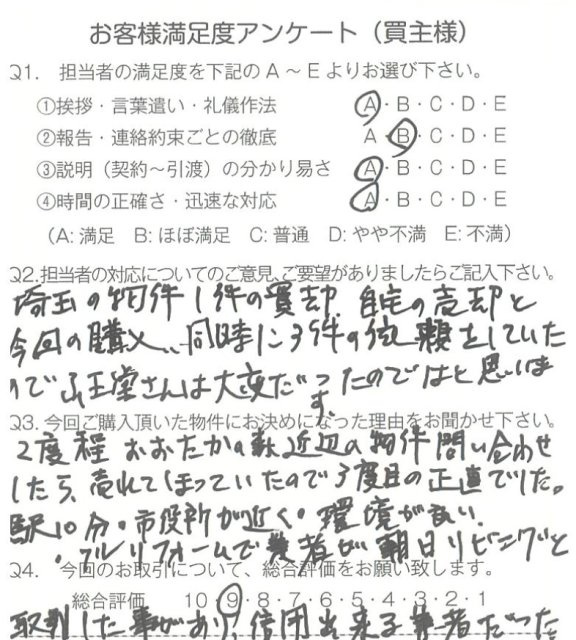 お客様満足度アンケート（買主様）
Q1. 担当者の満足度を下記のA～Eよりお選び下さい。
①挨拶・言葉遣い・礼儀作法 A・B・C・D・E
②報告・連絡約束ごとの徹底 A・B・C・D・E
③説明（契約～引渡）の分かり易さ A・B・C・D・E
④時間の正確さ・迅速な対応 A・B・C・D・E
（A: 満足 B: ほぼ満足 C: 普通 D: やや不満 E: 不満）
Q2.担当者の対応についてのご意見、ご要望がありましたらご記入下さい。
埼玉の物件1件の売却、自宅の売却と
今回の購入、同時に3件の依頼をしていた
ので 堂さんは大変だったのではと思いま
す。
Q3. 今回ご購入頂いた物件にお決めになった理由をお聞かせ下さい。
2度程おおたかの森近辺の物件問い合わせ
したら、売れてしまっていたので3度目の正直でした。
駅10分・市役所が近く・環境が良い。
・フルリフォームで業者が朝日リビングと
Q4. 今回のお取引について、総合評価をお願い致します。
総合評価 10・9・8・7・6・5・4・3・2・1
取引した事があり、信用出来る業者だった